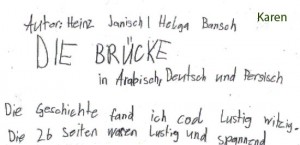 Karen
Autor: Heinz Janisch | Helga Bansch
DIE BRÜCKE
in Arabisch, Deutsch und Persisch
Die Geschichte fand ich cool Lustig witzig.
Die 26 Seiten waren Lustig und spannend